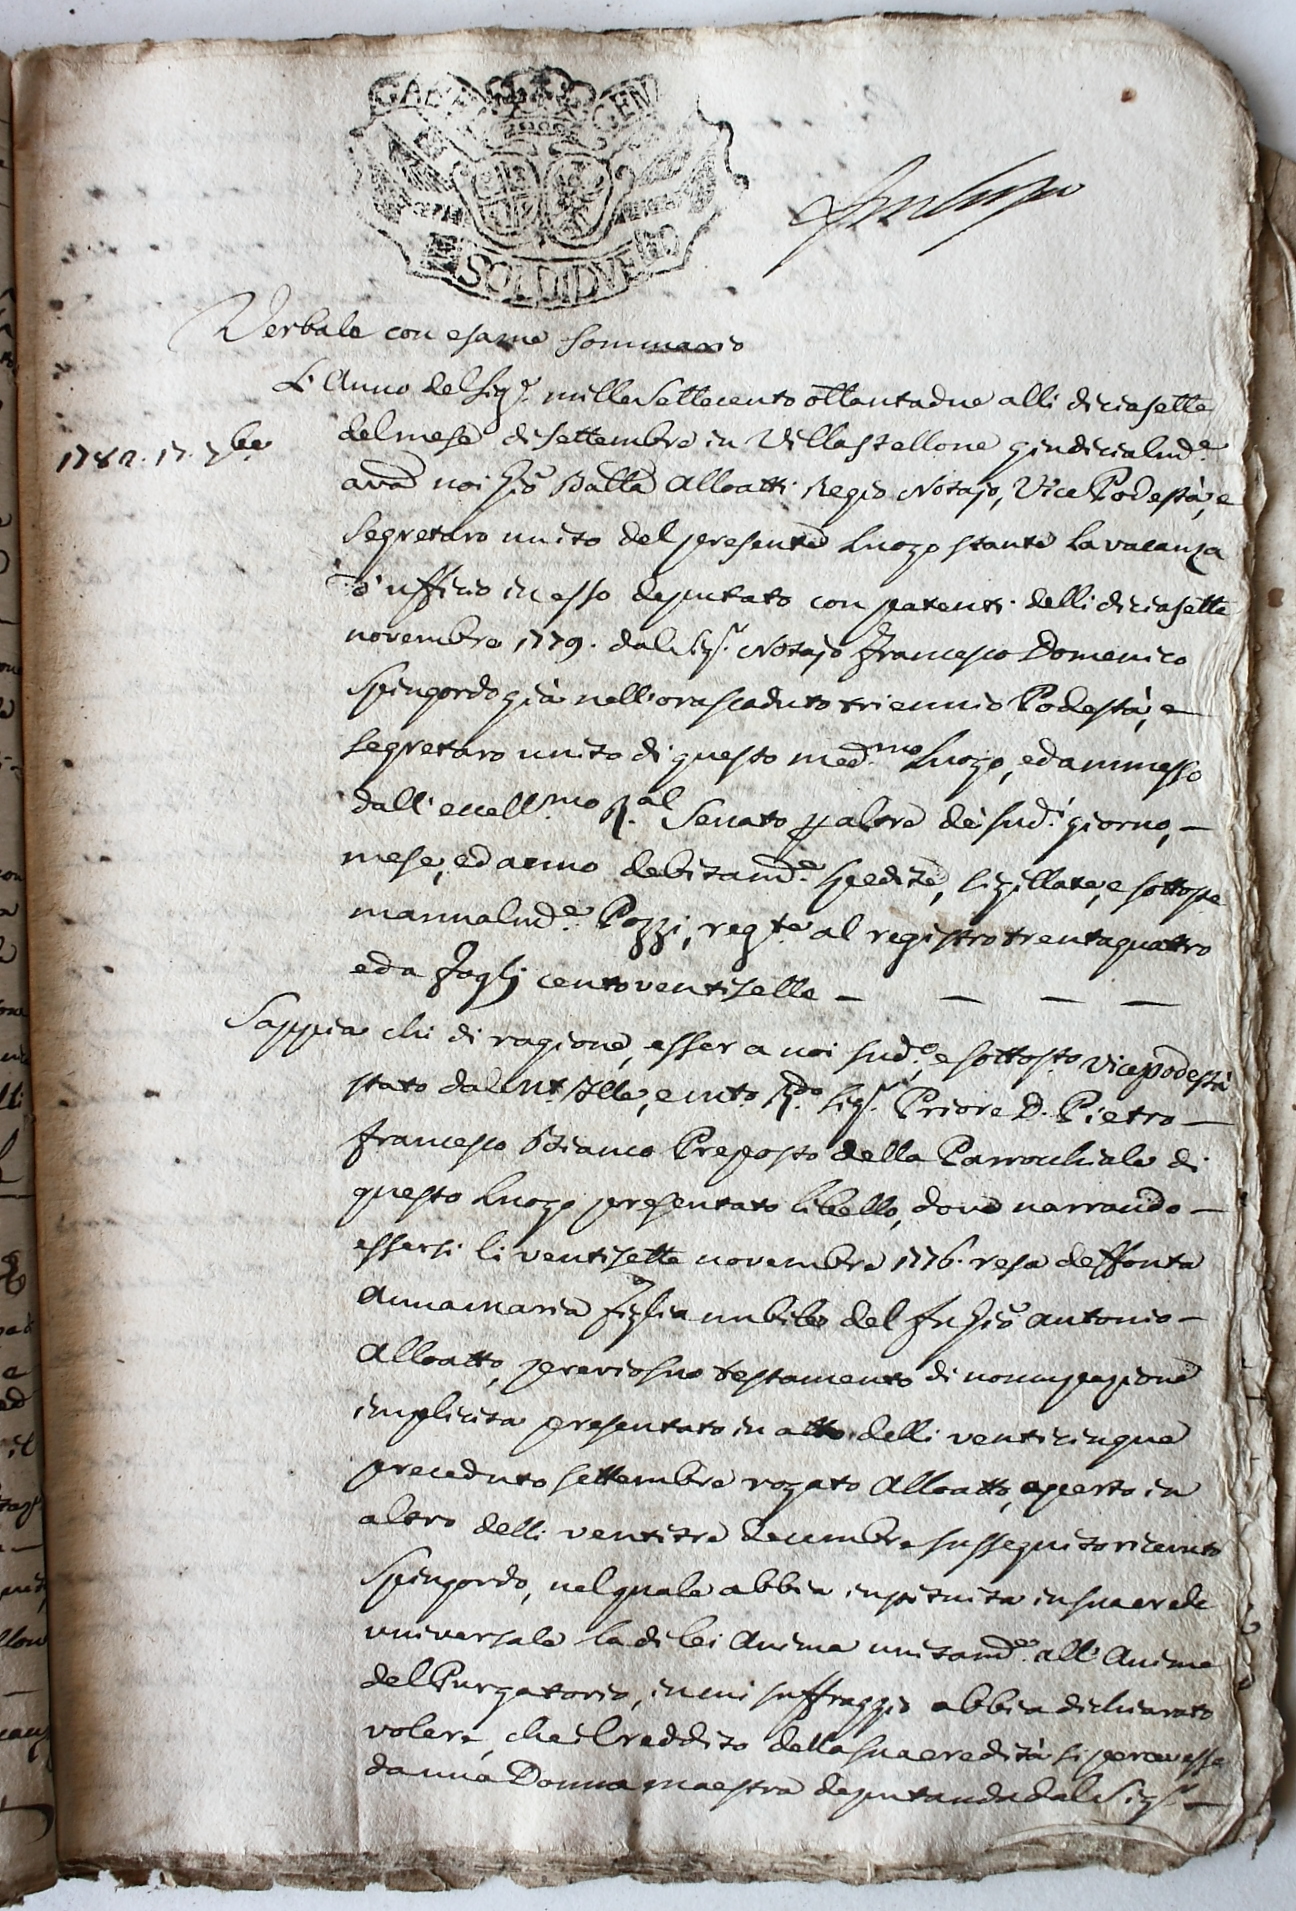 GABE GEN
SOLDI DVE
Verbale con esame sommario
L'Anno del Sig.r mille settecento ottantadue alli diciasette
1782. 17. 7bre
del mese di settembre in Villastellone giudicialm.e
avanti noi Gio Batta Alloatti Regio Notajo, Vice Podestà, e
Segretaro unito del presente Luogo stante la vacanza
d'ufficio in esso deputato con patenti delli diciasette
novembre 1779. dal Sig.r Notajo Francesco Domenico
Spingordo già nell'ora scaduto triennio Podestà, e
segretaro unito di questo med.mo Luogo, ed ammesso
dall'eccell.mo R.al Senato p alora de sud.i giorno, —
mese, ed anno debitam.e spedite, sigillate, e sottos.te
manualm.e Pozzi, reg.te al registro trentaquattro
ed a fogli centoventisette — — — —
Sappia chi di ragione, esser a noi sud.o, e sottos.to vicepodestà
stato dal M.to Ille, e m.to R.do Sig.r Priore D. Pietro —
Francesco Bianco Preposto della Parrochiale di
questo Luogo presentato libello, dove narrando —
essersi li ventisette novembre 1776. resa deffonta
Anna Maria figlia nubile del fu Gio Antonio —
Alloatto, previo suo testamento di noncupazione
implicita presentato in atto delli venticinque
preceduto settembre rogato Alloatto, aperto in
altro delli ventitre decembre sussequito ricevuto
Spingordo, nel quale abbia instituita in sua erede
universale la di lei Anima unitam.e all'Anime
del Purgatorio, in cui suffraggio abbia dichiarato
volere, che il reddito della sua eredità si percevesse
da una Donna maestra deputanda dal Sig.r —